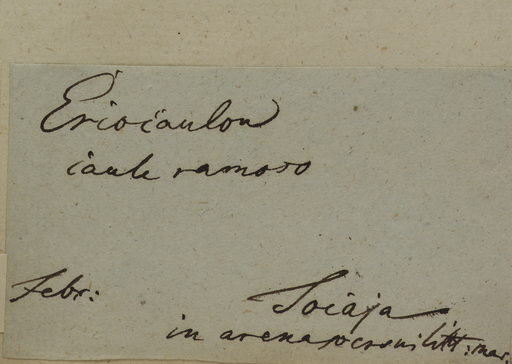 Eriocaulon
caule ramoso
Febr:
Soiaja
in arena litt: mar.